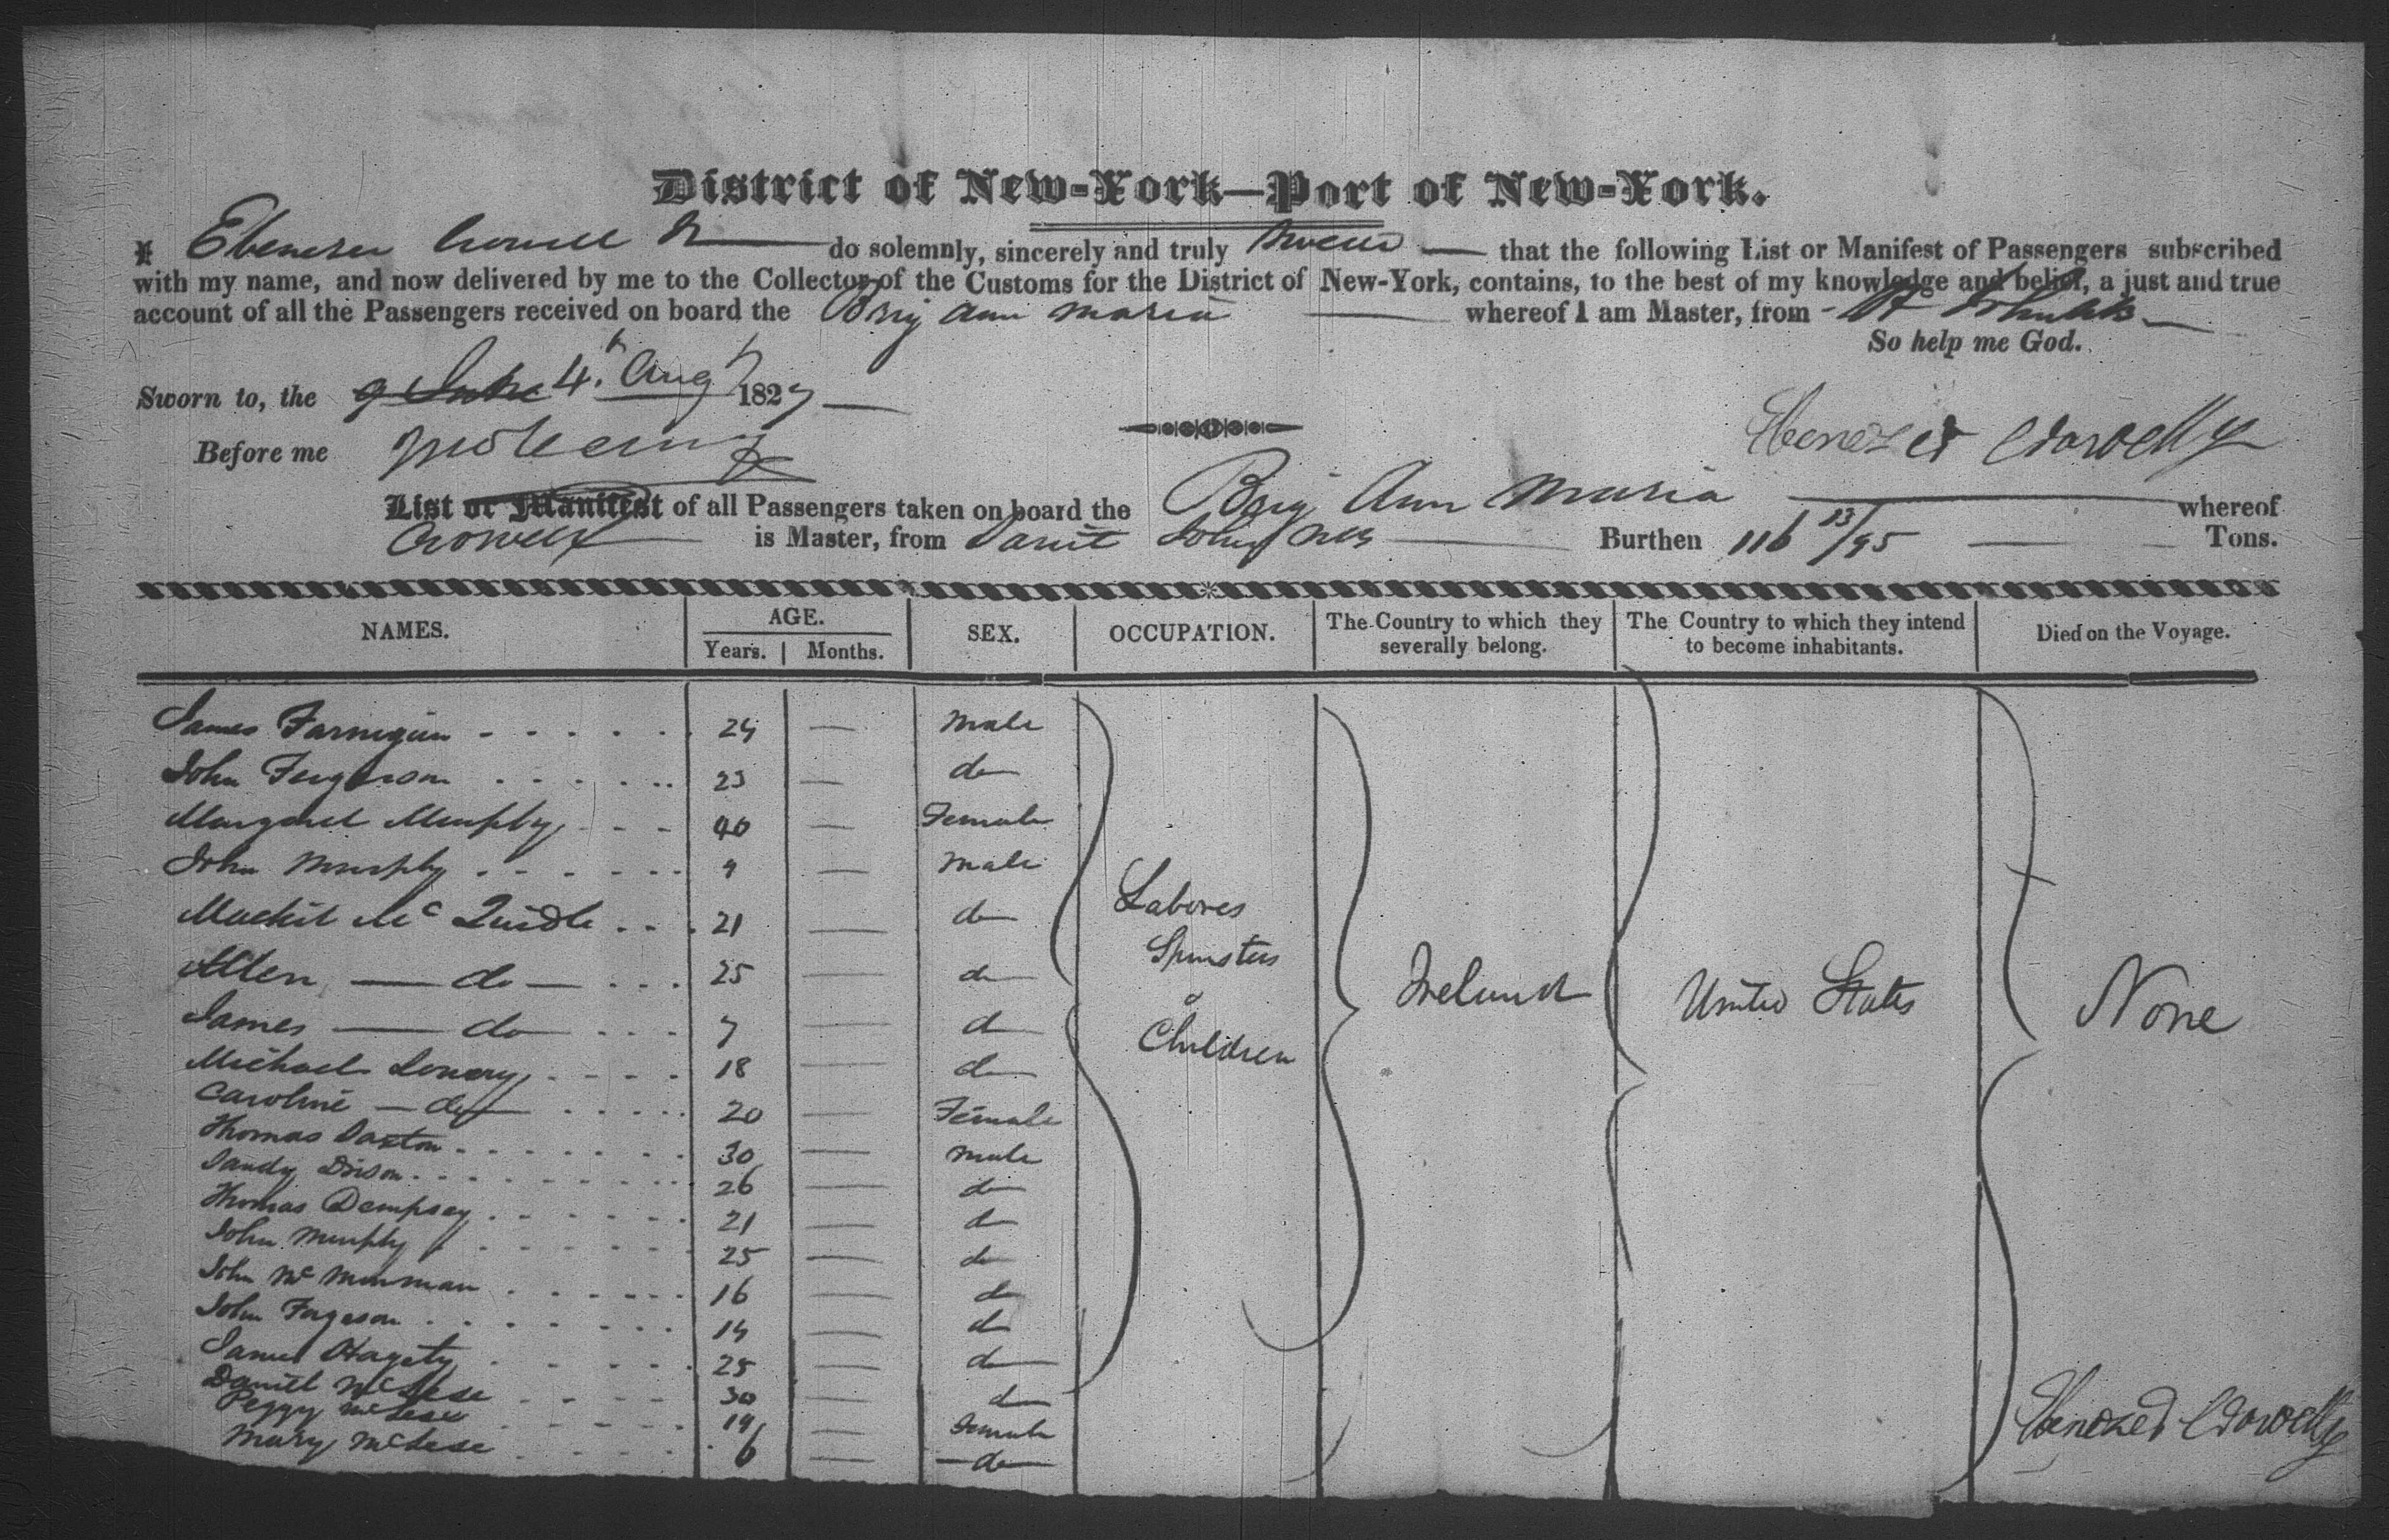 District of New-York—Port of New-York.
I Ebenezer Crowell Jr do solemnly, sincerely and truly Swear that the following List or Manifest of Passengers subscribed
with my name, and now delivered by me to the Collector of the Customs for the District of New-York, contains, to the best of my knowledge and belief, a just and true
account of all the Passengers received on board the Brig Ann Maria whereof I am Master, from St Johns NB
So help me God.
Sworn to, the 4th Augt 1827
Before me
Ebenezer Crowell Jr
List or Manifest of all Passengers taken on board the Brig Ann Maria whereof
Crowell is Master, from Saint Johns NB Burthen 116 13/95 Tons.
NAMES. AGE. Years. Months. SEX. OCCUPATION. The Country to which they severally belong. The Country to which they intend to become inhabitants. Died on the Voyage.
James Farnigan 24 — Male
John Fergerson 23 — do
Margaret Murphy 40 — Female
John Murphy 9 — Male
Mc 21 — do
Allen — do — 25 — do
James — do 7 — do
Michael Lowery 18 — do
Caroline — do 20 — Female
Thomas Saxton 30 — Male
Sandy Dixson 26 — do
Thomas Dempsey 21 — do
John Murphy 25 — do
John Mc Murman 16 — do
John Fergeson 14 — do
Samuel Hagety 25 — do
Daniel McLese 30 — do
Peggy McLese 19 — Female
Mary McLese 6 — do
Labores
Spinsters
&
Children
Ireland
United States
None
Ebenezer Crowell Jr